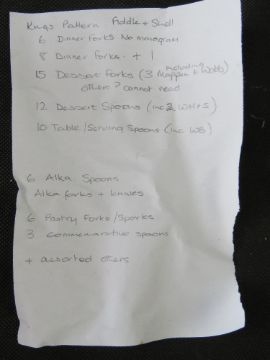 Kings Pattern Fiddle + Shell
6 Dinner Forks No monogram
8 Dinner Forks + 1
15 Dessert Forks (3 including Mappin & Webb)
others? cannot read
12 Dessert Spoons (inc 2 WH+S)
10 Table/Serving Spoons (inc WB)
6 Alka Spoons
Alka forks + knives
6 Pastry Forks/Sporks
3 commemorative spoons
+ assorted others